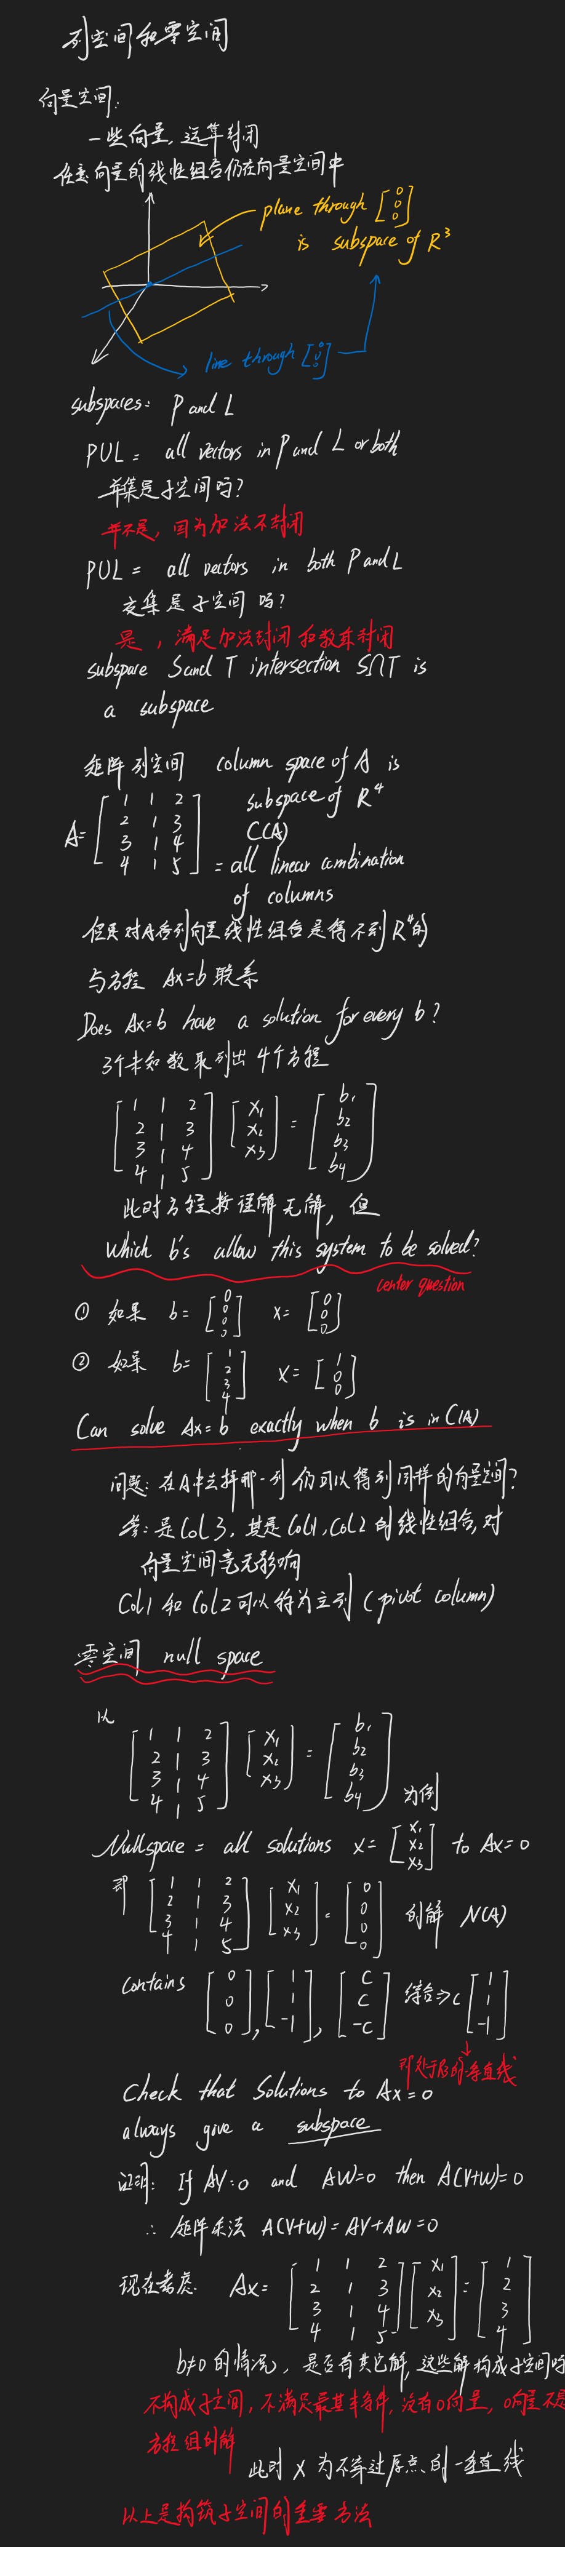 列空间和零空间
向量空间:
一些向量, 运算封闭
任意向量的线性组合仍在向量空间中
plane through [0 0 0]
is subspace of R³
line through [0 0 0]
subspaces: P and L
PUL = all vectors in P and L or both
并集是子空间吗?
并不是, 因为加法不封闭
PUL = all vectors in both P and L
交集是子空间吗?
是, 满足加法封闭和数乘封闭
subspace S and T intersection S∩T is
a subspace
矩阵列空间 column space of A is
subspace of R⁴
A= [1 1 2
2 1 3
3 1 4
4 1 5]
C(A)
= all linear combination
of columns
但是对A各列向量线性组合是得不到R⁴的
与方程 Ax=b 联系
Does Ax=b have a solution for every b?
3个未知数取列出4个方程
[1 1 2
2 1 3
3 1 4
4 1 5] [x₁ x₂ x₃] = [b₁ b₂ b₃ b₄]
此时方程按理解无解, 但
which b's allow this system to be solved?
center question
① 如果 b= [0 0 0 0] x= [0 0 0]
② 如果 b= [1 2 3 4] x= [1 0 0]
Can solve Ax=b exactly when b is in C(A)
问题: 在A中去掉哪一列仍可以得到同样的向量空间?
答: 是Col 3, 其是Col1, Col2的线性组合, 对
向量空间毫无影响
Col1 和 Col2 可以称为主列 (pivot column)
零空间 null space
以 [1 1 2
2 1 3
3 1 4
4 1 5] [x₁ x₂ x₃] = [b₁ b₂ b₃ b₄] 为例
Nullspace = all solutions x= [x₁ x₂ x₃] to Ax=0
即 [1 1 2
2 1 3
3 1 4
4 1 5] [x₁ x₂ x₃] = [0 0 0 0] 的解 N(A)
contains [0 0 0], [1 1 -1], [C C -C] 综合⇒ C [1 1 -1]
Check that Solutions to Ax=0
always give a subspace
证明: If AV=0 and AW=0 then A(V+W)=0
∴ 矩阵乘法 A(V+W)=AV+AW=0
现在考虑. Ax= [1 1 2
2 1 3
3 1 4
4 1 5] [x₁ x₂ x₃] = [1 2 3 4]
b≠0的情况, 是否有其它解, 这些解构成子空间吗
不构成子空间, 不满足最基本条件, 没有0向量, 0向量不是
方程组的解
此时 X 为不穿过原点的一条直线
以上是构筑子空间的重要方法